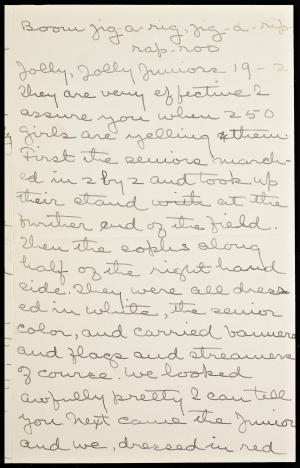 Boom jig-a-rig, jig-a-rip
rap-roo
Jolly, Jolly Juniors 19-2
They are very effective I
assure you when 250
girls are yelling them.
First the seniors march-
ed in 2 by 2 and took up
their stand with at the
further end of the field.
Then the sophs along
half of the right hand
side. They were all dress
ed in white, the senior
color, and carried banners
and flags and streamers
of course. We looked
awfully pretty I can tell
you. Next came the Juniors
and we, dressed in red